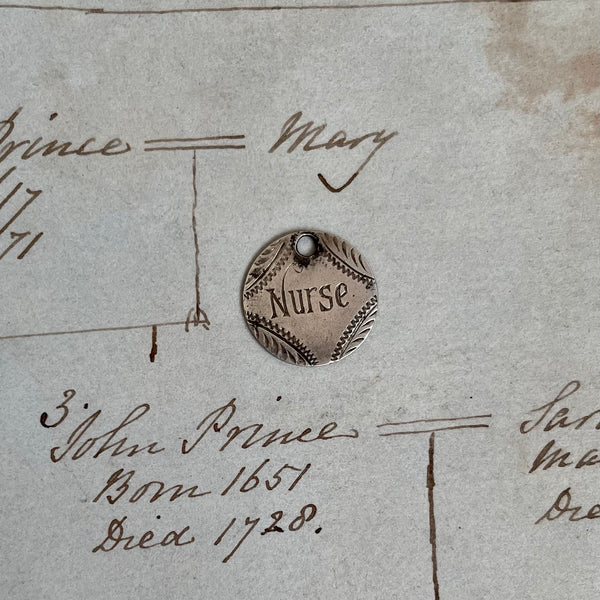 Prince Mary
/17
/71
Nurse
3. John Prince
Born 1651
Died 1728.